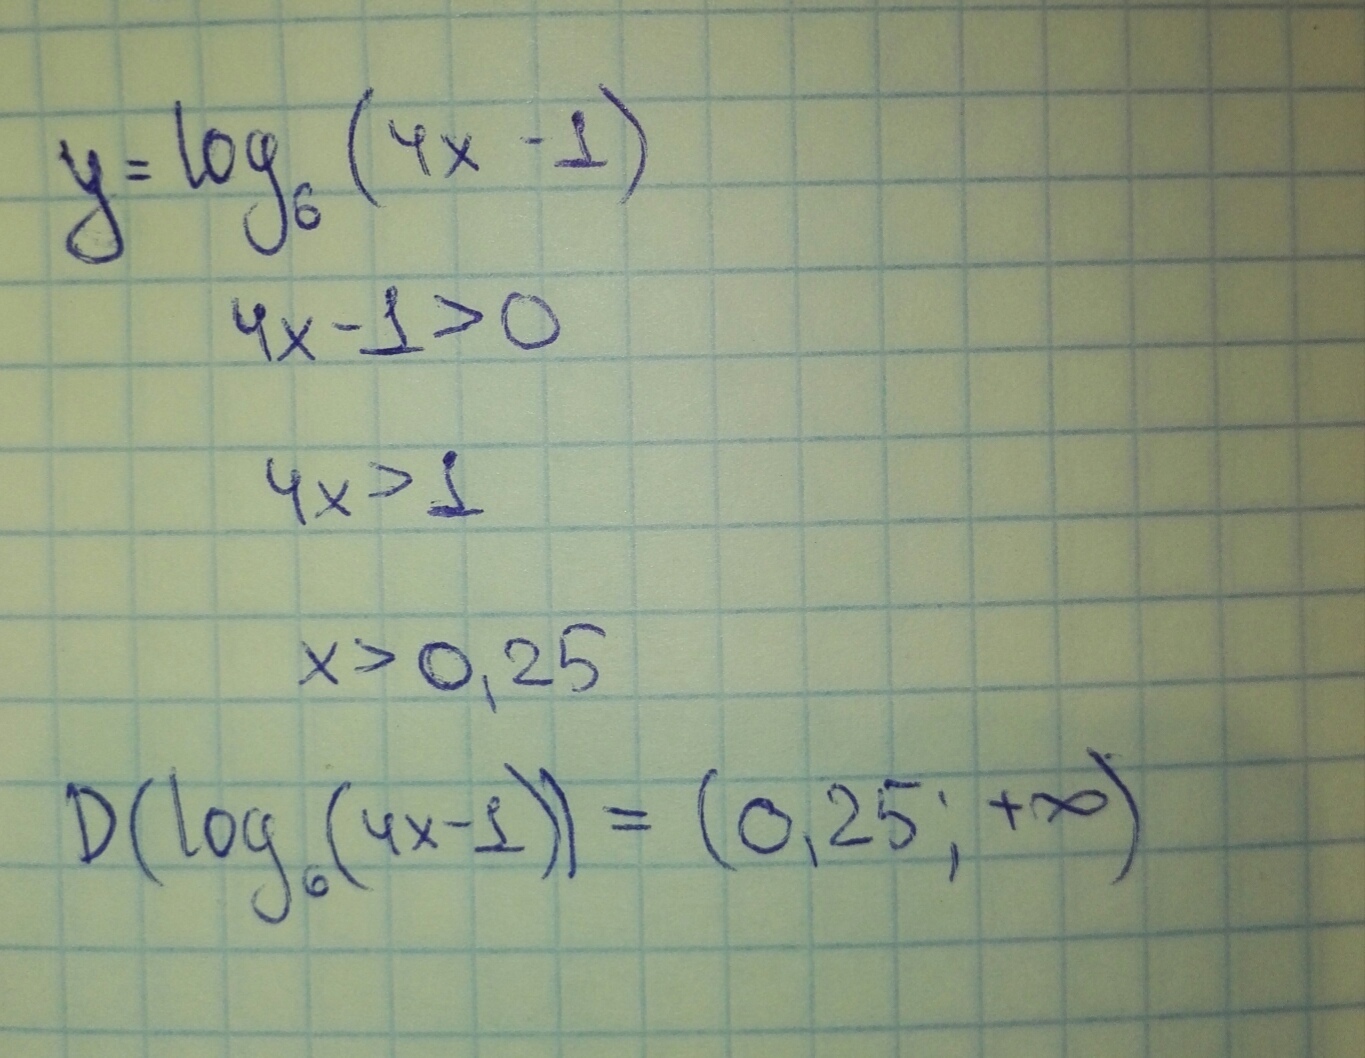 y = log₆ (4x - 1)
4x - 1 > 0
4x > 1
x > 0,25
D(log₆(4x-1)) = (0,25; +∞)